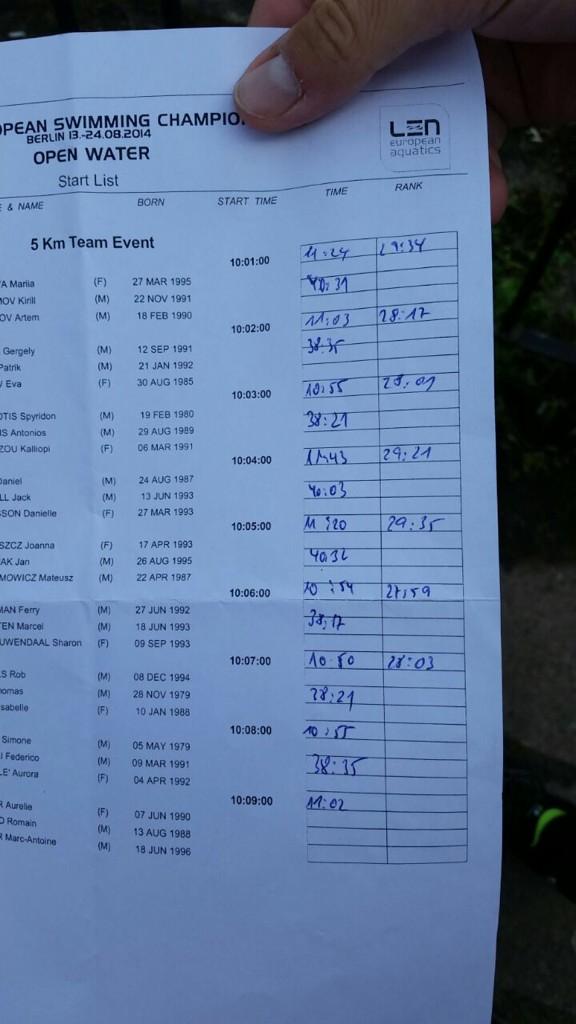 OPEAN SWIMMING CHAMPIO
BERLIN 13.-24.08.2014
OPEN WATER
LEN
european
aquatics
Start List
& NAME BORN START TIME TIME RANK
5 Km Team Event
10:01:00 11:24 29:34
A Mariia (F) 27 MAR 1995 40:31
MOV Kirill (M) 22 NOV 1991
OV Artem (M) 18 FEB 1990
10:02:00 11:03 28:17
Gergely (M) 12 SEP 1991 38:35
Patrik (M) 21 JAN 1992
Eva (F) 30 AUG 1985
10:03:00 10:55 28:01
OTIS Spyridon (M) 19 FEB 1980 38:21
IS Antonios (M) 29 AUG 1989
ZOU Kalliopi (F) 06 MAR 1991
10:04:00 11:43 29:21
Daniel (M) 24 AUG 1987 40:03
LL Jack (M) 13 JUN 1993
SSON Danielle (F) 27 MAR 1993
10:05:00 11:20 29:35
SZCZ Joanna (F) 17 APR 1993 40:32
AK Jan (M) 26 AUG 1995
MOWICZ Mateusz (M) 22 APR 1987
10:06:00 10:54 27:59
MAN Ferry (M) 27 JUN 1992 38:17
TEN Marcel (M) 18 JUN 1993
UWENDAAL Sharon (F) 09 SEP 1993
10:07:00 10:50 28:03
S Rob (M) 08 DEC 1994
homas (M) 28 NOV 1979 38:21
sabelle (F) 10 JAN 1988
10:08:00 10:55
Simone (M) 05 MAY 1979
I Federico (M) 09 MAR 1991 38:35
LE' Aurora (F) 04 APR 1992
10:09:00 11:02
R Aurelie (F) 07 JUN 1990
D Romain (M) 13 AUG 1988
R Marc-Antoine (M) 18 JUN 1996